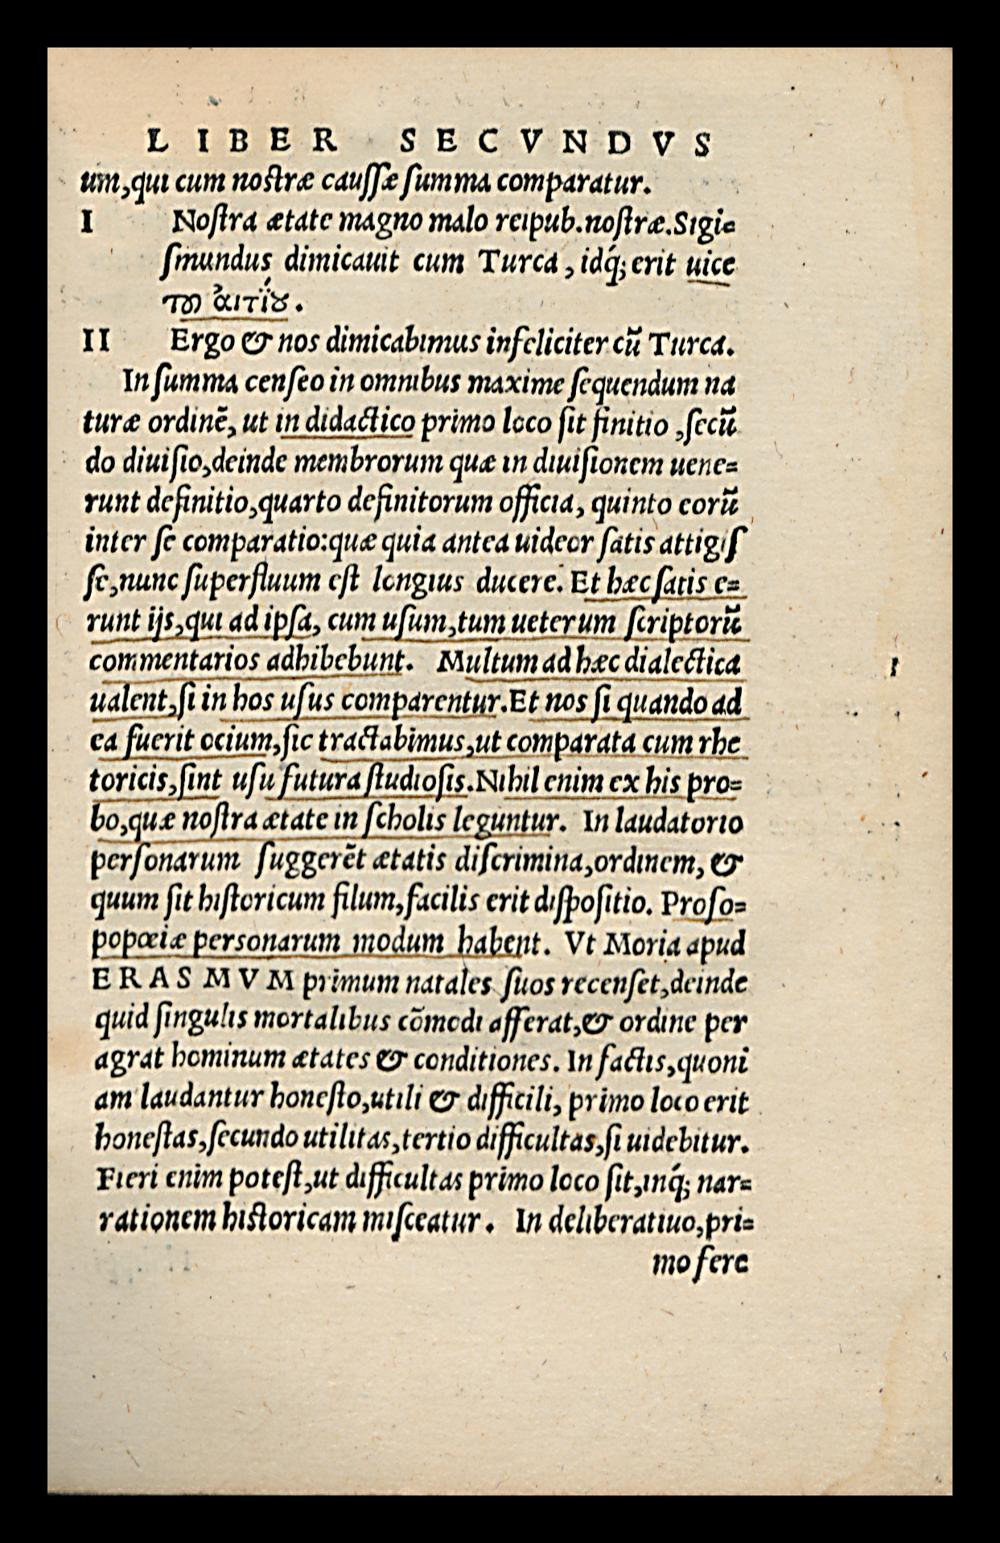 LIBER SECVNDVS
um,qui cum nostræ caussæ summa comparatur.
I Nostra ætate magno malo reipub.nostræ.Sigi=
smundus dimicauit cum Turca, idq́; erit uice
τοῦ αἰτίου.
II Ergo & nos dimicabimus infeliciter cũ Turca.
In summa censeo in omnibus maxime sequendum na
turæ ordinẽ, ut in didactico primo loco sit finitio ,secũ
do diuisio,deinde membrorum quæ in diuisionem uene=
runt definitio,quarto definitorum officia, quinto eorũ
inter se comparatio:quæ quia antea uideor satis attigis
se,nunc superfluum est longius ducere. Et hæc satis e=
runt ijs,qui ad ipsa, cum usum,tum ueterum scriptorũ
commentarios adhibebunt. Multum ad hæc dialectica
ualent,si in hos usus comparentur.Et nos si quando ad
ea fuerit ocium,sic tractabimus,ut comparata cum rhe
toricis,sint usu futura studiosis.Nihil enim ex his pro=
bo,quæ nostra ætate in scholis leguntur. In laudatorio
personarum suggerẽt ætatis discrimina,ordinem, &
quum sit historicum filum,facilis erit dispositio. Proso=
popœiæ personarum modum habent. Vt Moria apud
ERASMVM primum natales suos recenset,deinde
quid singulis mortalibus cõmodi afferat,& ordine per
agrat hominum ætates & conditiones. In factis,quoni
am laudantur honesto,utili & difficili, primo loco erit
honestas,secundo utilitas,tertio difficultas,si uidebitur.
Fieri enim potest,ut difficultas primo loco sit,inq́; nar=
rationem historicam misceatur. In deliberatiuo,pri=
mo fere